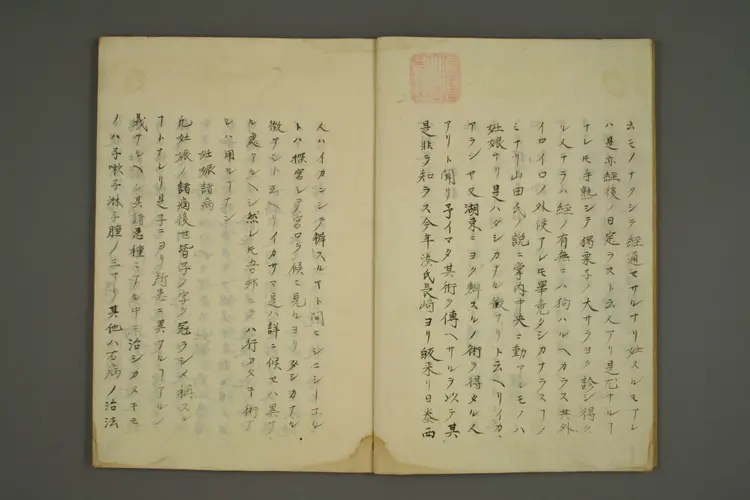 云モノナクシテ經通セサルナリ妊スルモアレ
ハ是亦經後ノ日定ラスト云人アリ是尤ナルヿ
ナレ𪜈手熟シテ獨栗子ノ大サラヨク診シ得ル
ル人ナラハ經ノ有無ニハ狗ハルヘカラス其外
イロイロノ外候アレ𪜈畢竟タシカナラスヿノ
ミナリ山田氏ノ説ニ掌内中央ニ動アルモノハ
妊娠ナリ是ハタシカナル徴ナリト云ヘリイカヽ
アラシヤ又湖東ニヨク辨スルノ術ヲ得タル人
アリト聞リ予イマタ其術ヲ傳ヘサルヲ以テ其
是非ヲ知ラス今年湊氏長崎ヨリ皈来リ曰泰西
人ハイカンシテ辨スルヤト問ヒシニシーホル
トハ探宮シテ宮口ヲ候ヒ見ルヨリタシカナル
徴ナシト云ヘリイカサマ是ハ詳ニ候ヘハ異ナ
ル處アルヘシ然レ𪜈吾邦ニテハ行カタキ術ナ
レハ用ルヿナシ
妊娠諸病
凡妊娠ノ諸病後世皆子ノ字ヲ冠ラシメ稱スル
ヿトナレリ是子ニヨリ所患ニ異アルヿアルノ
義ナルヘシ其諸患種々アル中ニ治シカタキモ
ノハ子嗽子淋子腫ノ三ナリ其他ハ万病ノ治法